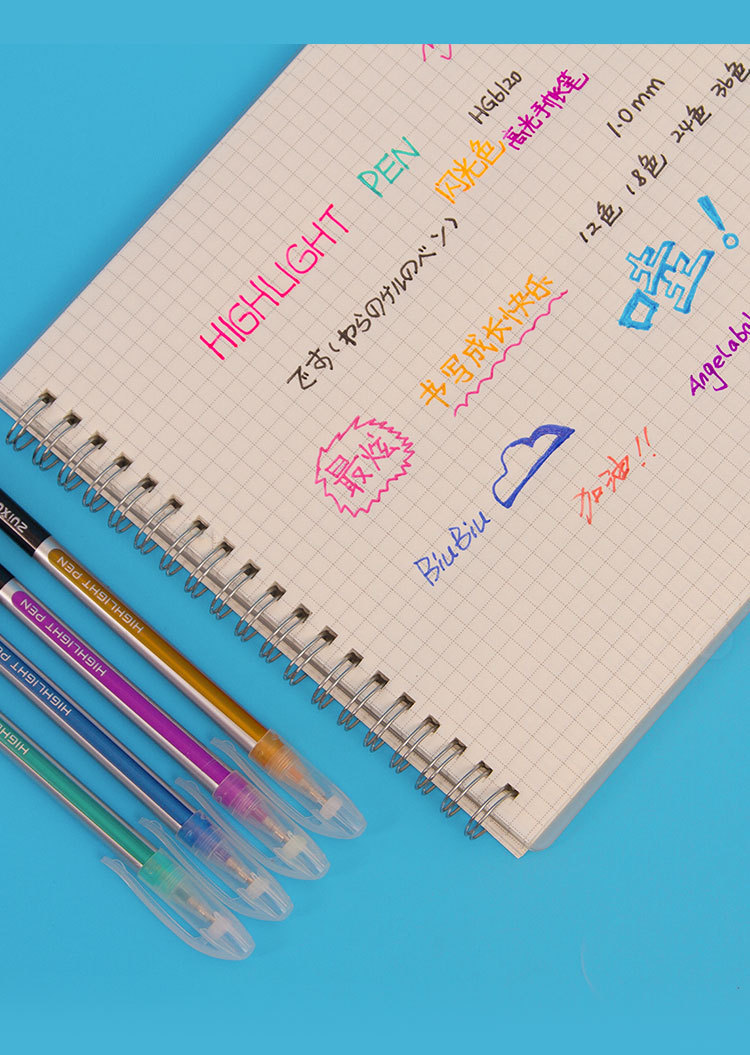 HG6120
HIGHLIGHT PEN
闪光色 高光手帐笔
1.0mm
です(わらのゲルのペン)
12色 18色 24色 36色
书写成长快乐
哇!
最炫
BiuBiu
加油!!
HIGHLIGHT PEN
HIGHLIGHT PEN
HIGHLIGHT